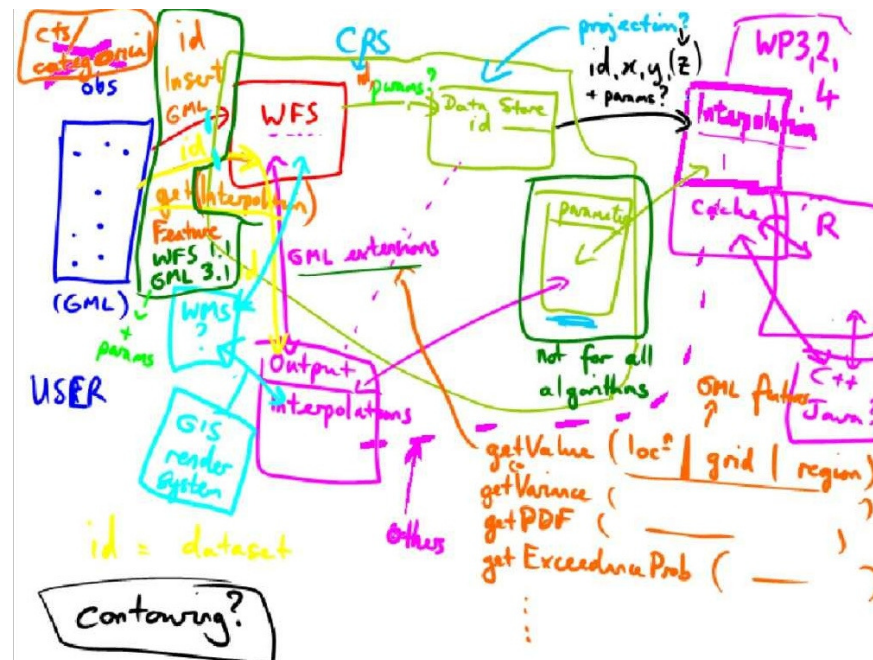 cts/
categorical
obs
id
Insert
GML
id
get(Interpolation)
Feature
WFS 1.1
GML 3.1
(GML)
+
params
USER
CRS
WFS
id,
params?
Data Store
id
projection?
id, x, y, (z)
+ params?
WP3,2,
4
Interpolation
Cache
R
C++
Java?
parameters
not for all
algorithms
GML extensions
id
WMS
?
Output
Interpolations
GIS
render
system
others
GML features
getValue (locⁿ | grid | region)
getCoVariance (
)
getPDF ( )
getExceedanceProb ( )
id = dataset
contouring?